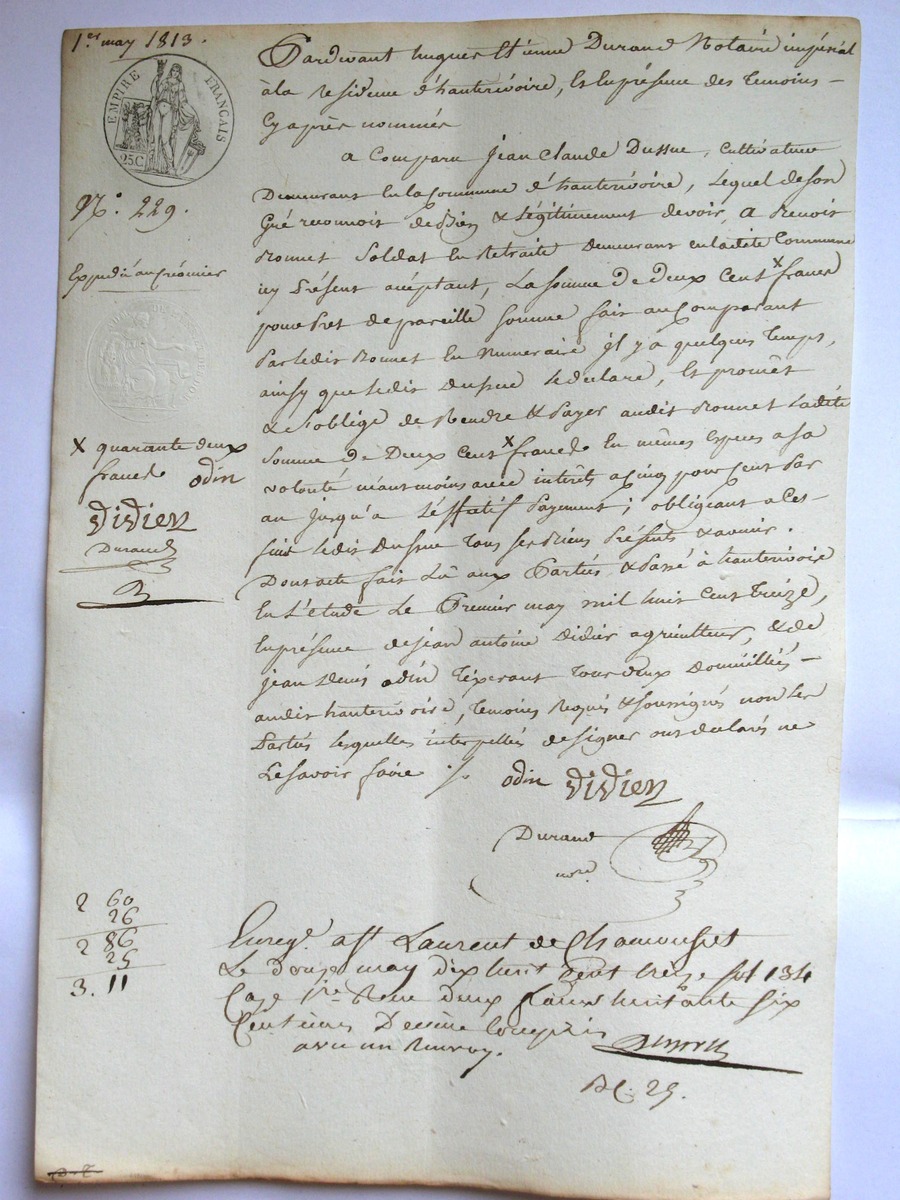 1er may 1813.
EMPIRE FRANÇAIS
25C
N.° 229.
Expédié au Créancier
X quarante deux
francs odin
didier
Durand
Pardevant hugues Etienne Durand Notaire impérial
à la residence d'hauterivoire, Et En présence des Temoins
Cy après nommés
a Comparu Jean Claude Dussue, Cultivateur
Demeurant En la Commune d'hauterivoire, Lequel de son
Gré reconnoit de Bien & Légitimement devoir, a Benoit
Bonnet Soldat En Retraite Demeurant en ladite Commune
icy Présent acceptant, La Somme de deux Cent X francs
pour Pret de pareille Somme fait au Comparant
Par ledit Bonnet En Numeraire jl y a quelques Temps,
ainsy que ledit dussue le declare, Et promêt
& s'oblige de Rendre & Payer audit Bonnet Ladite
Somme de Deux Cent X francs En mêmes Especes a sa
volonté néantmoins avec intérêts a Cinq pour Cent Par
an jusqu'a L'Effectif Payement; obligeant a Cet
fins ledit Dussue Tous ses Biens Présents & avenir.
Dont acte fait Lû aux Parties & Passé à hauterivoire
En L'étude Le Premier may mil huit Cent Treize,
En présence de jean antoine didier agriculteur, & de
jean denis odin Tixerant Tous deux Domiciliés
audit hauterivoire, Temoins Requis & soussignés non Les
Parties lesquelles interpellées de signer ont declarés ne
Le Savoir faire ./.
odin didier
Durand
nore
2 60
26
2 86
25
3. 11
Enregé. a St Laurent de Chamousset
Le douze may dix huit Cent treize fol 134
Case 1re Reçu deux francs huitante Six
Centimes Decime Compris
avec un Renvoy.
25.